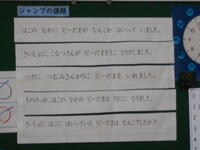 ジャンプの課題
はこの なかに ビーだまが なんこか はいって いました。
さいしょに、こなつさんが ビーだまを3こ とりだしました。
つぎに つむみさんが5こ ビーだまを いれました。
そのけっか、はこの なかの ビーだまは 10こに なりました。
さいしょに はこに はいっていた ビーだまは なんこでしたか?